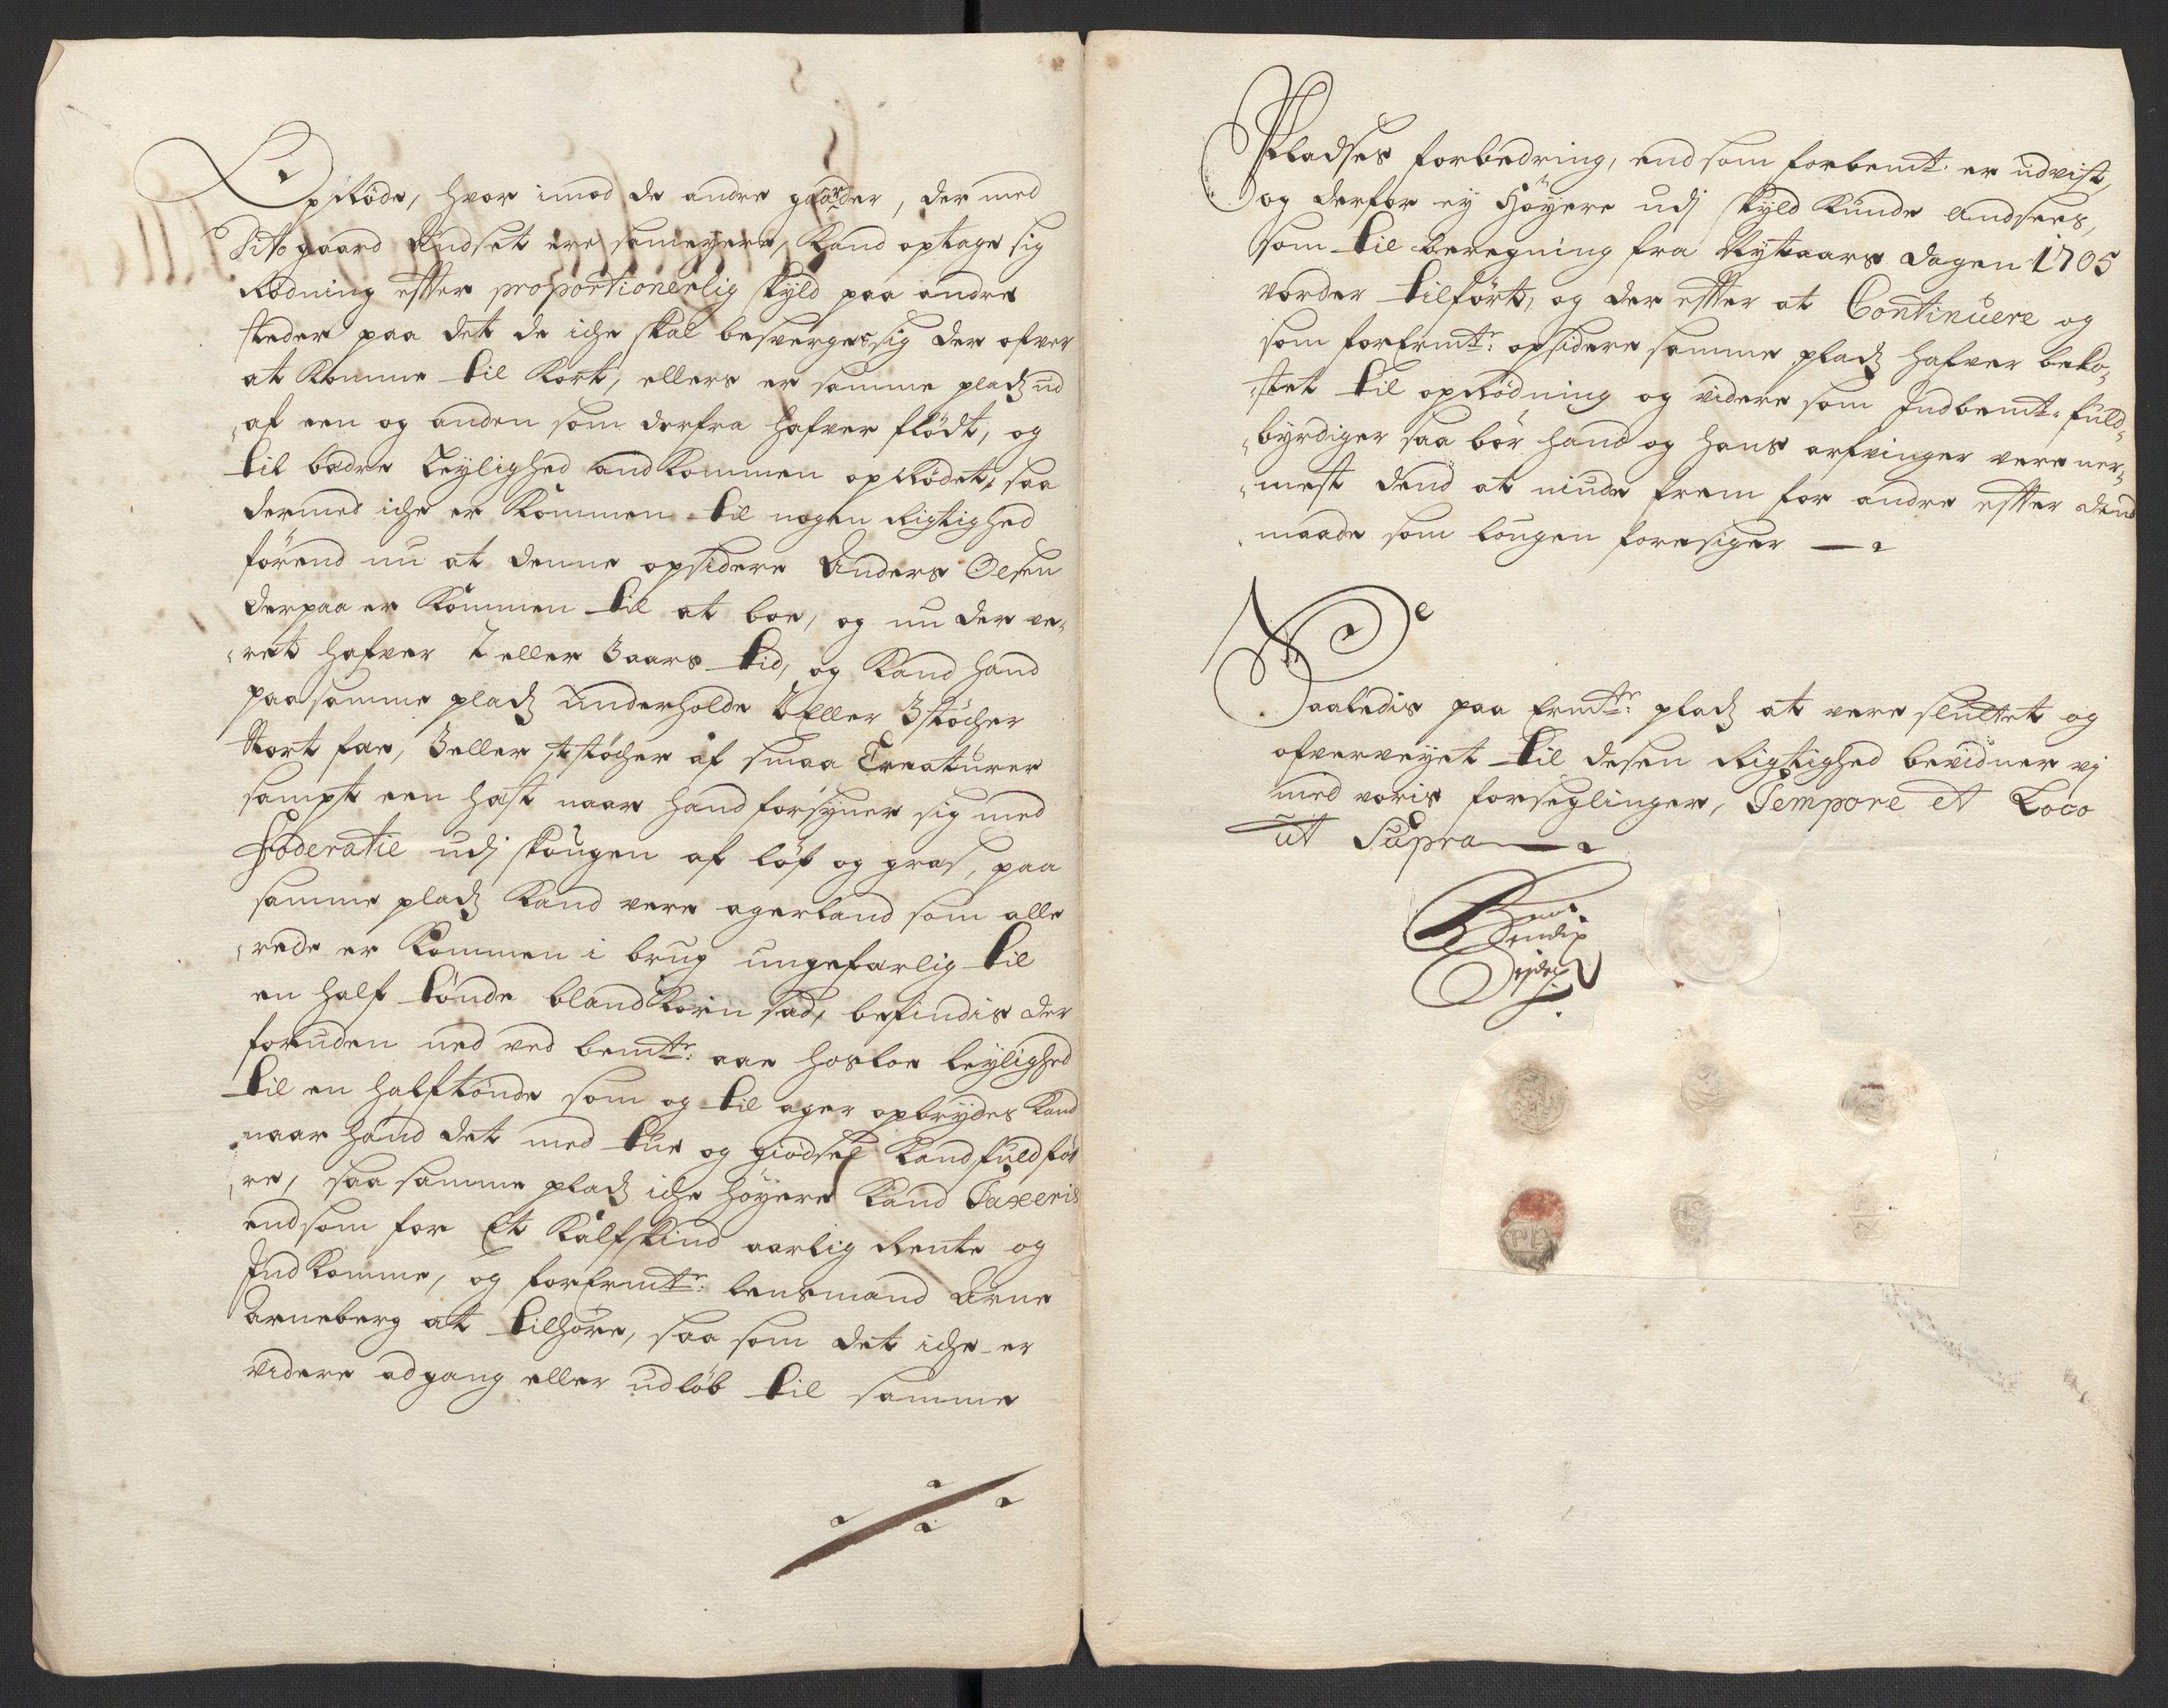 Oprøde, hvor imod de andre gaarder, der med
gaard Andset ere sameyere, kand optage sig
Rødning efter proportionerlig skyld paa andre
steder paa det de iche skal besverge sig der ofver
at komme til kort, ellers er samme pladz ud
af een og anden som derfra hafver flödt, og
til bædre Leylighed and kommen opRödet, saa
dermed iche er kommen til nogen Rigtighed
förend nu at denne opsidere Anders Olsen
derpaa er kommen til at boe, og nu der ve-
ret hafver 2 eller 3 aars tid, og kand hand
paa samme pladz underholde 2 eller 3 støcher
stort fæe, 3 eller 4 støcher af smaa Creaturer
sampt een hæst naar hand forsyner sig med
Foderatie udj skougen af löf og græs, paa
samme pladz kand vere agerland som alle
rede er kommen i brug ungefærlig til
en half tönde blandkorn sæd, befindis der
foruden ned ved bemte: aae hosloe leylighed
til en half tönde som og til ager opbrydes kand
naar hand det med tue og giödsel kand fuldfö
re, saa samme pladz iche höyere kand Taxeris
end som for Et kalfskind aarlig Rente og
Indkomme, og forermte: lensmand Arne
Arneberg at tilhöre, saa som det iche er
videre adgang eller udlöb til samme
Pladses forbedring, end som forbemt: er udvist,
og derfor ey Höyere udj skyld kunde Andsees,
som til beregning fra Nytaars dagen 1705
vorder tilfört, og der efter at Continuere og
som forermte: opsidere samme pladz hafver beko-
stet til opRödning og videre som Indbemt: fuld-
byrdiger saa bör hand og hans arfvinger vere ner-
mest dend at niude frem for andre efter dend
maade som lougen foresiger
Saaledis paa ermte: pladz at vere sluttet og
ofverveyet til desen Rigtighed bevidner vj
med voris forseglinger, Tempore et Loco
ut Supra